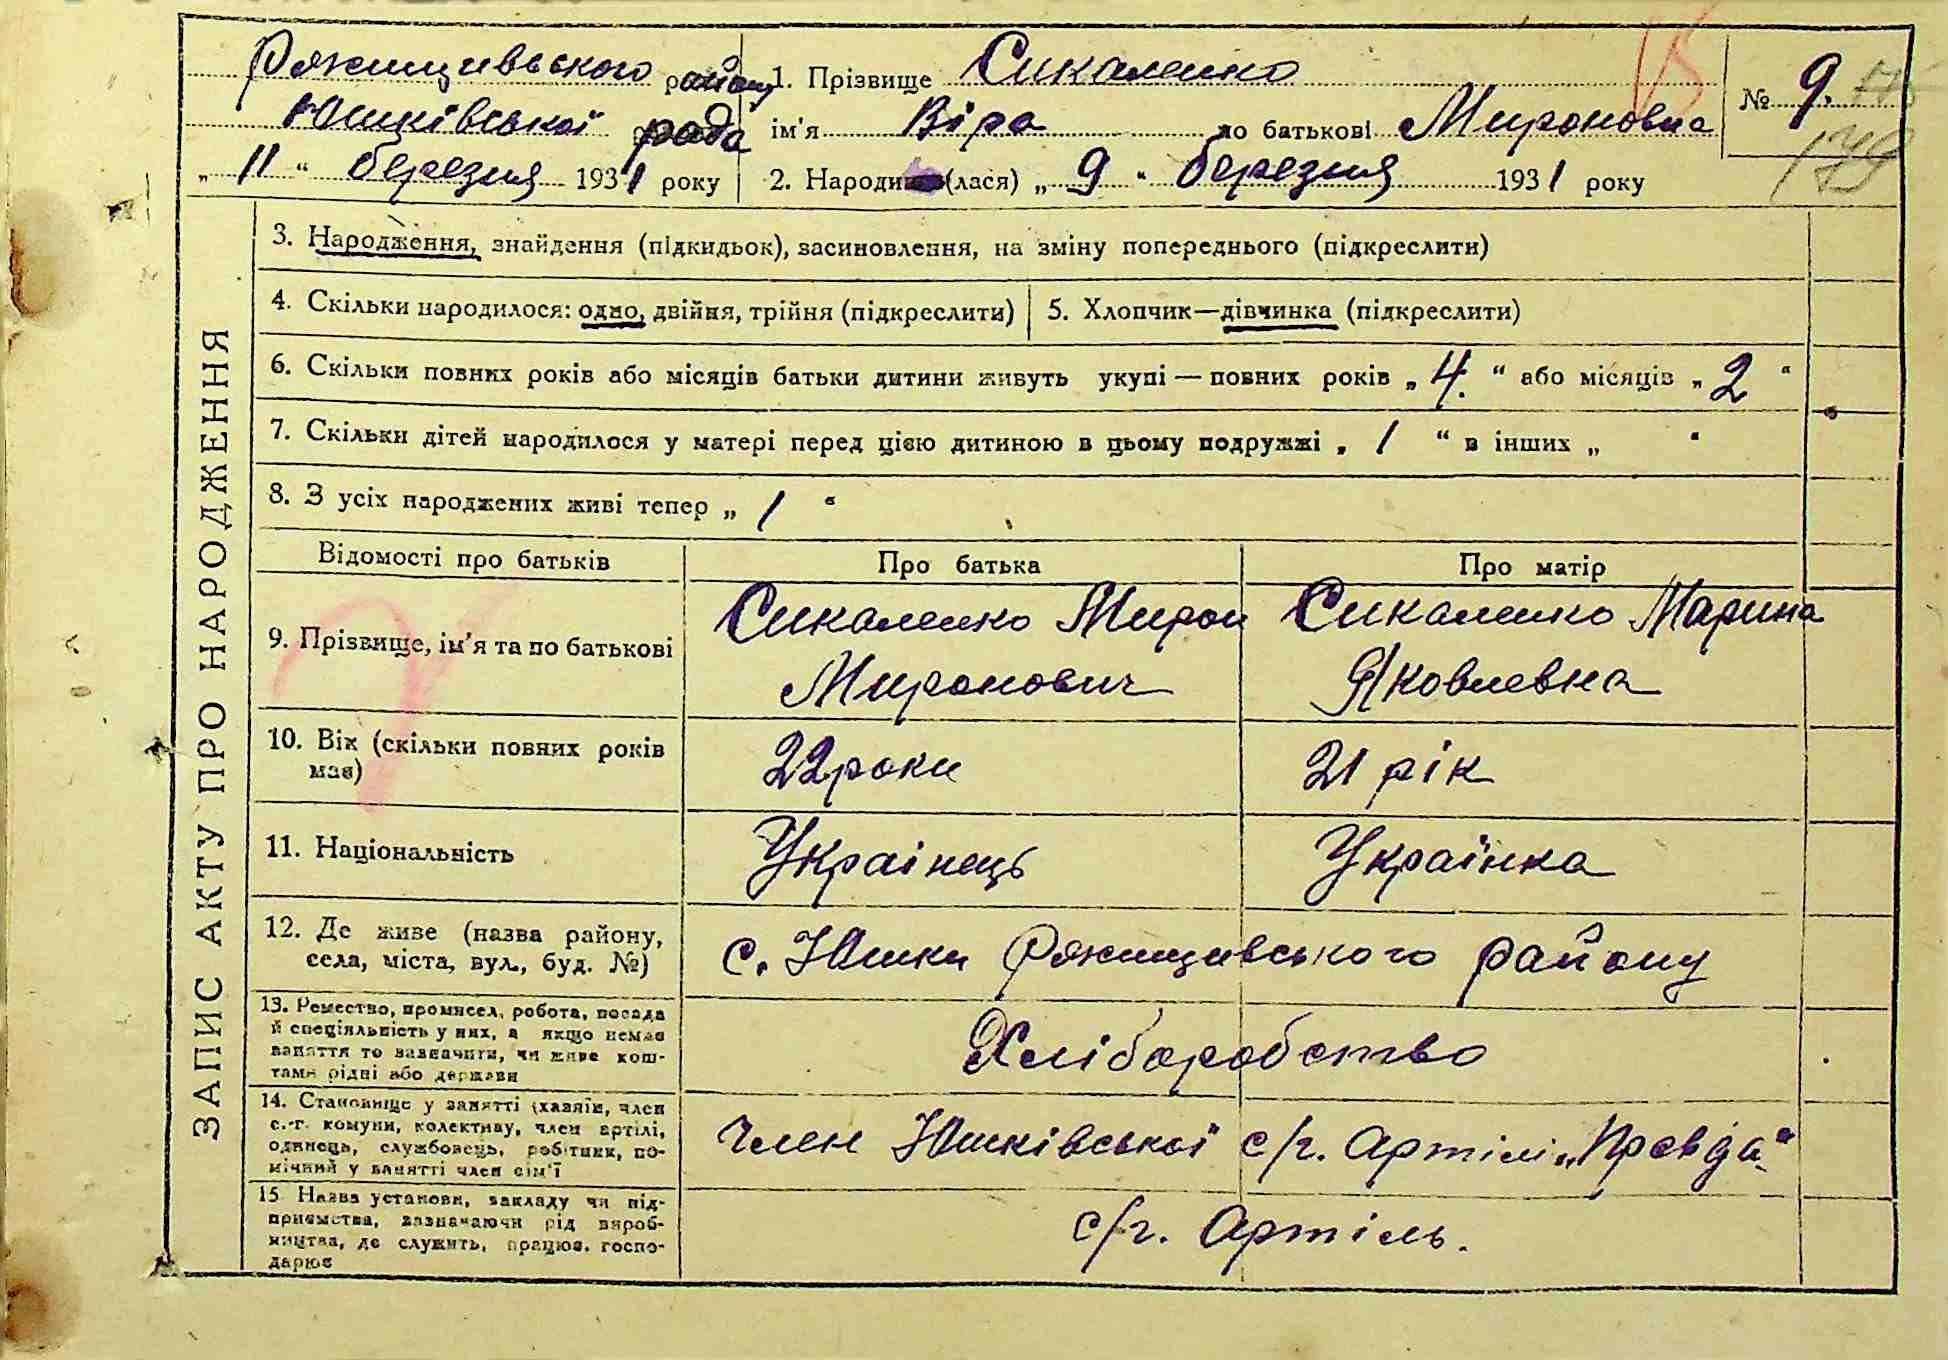 Ржищивського району
Юшківської рада
„ 11 “ березня 1931 року
1. Прізвище Сикаленко
ім'я Віра по батькові Мироновна
2. Народи (лася) „ 9 “ березня 1931 року
№ 9.
179
ЗАПИС АКТУ ПРО НАРОДЖЕННЯ
3. Народження, знайдення (підкидьок), засиновлення, на зміну попереднього (підкреслити)
4. Скільки народилося: одно, двійня, трійня (підкреслити)
5. Хлопчик—дівчинка (підкреслити)
6. Скільки повних років або місяців батьки дитини живуть укупі — повних років „ 4. “ або місяців „ 2 “
7. Скільки дітей народилося у матері перед цією дитиною в цьому подружжі „ 1 “ в інших „ “
8. З усіх народжених живі тепер „ 1 “
Відомості про батьків
Про батька
Про матір
9. Прізвище, ім'я та по батькові
Сикаленко Мирон
Миронович
Сикаленко Марина
Яковлевна
10. Вік (скільки повних років
має)
22 роки
21 рік
11. Національність
Украінець
Українка
12. Де живе (назва району,
села, міста, вул., буд. №)
с. Юшки Ржищивського району
13. Ремество, промисел, робота, посада
й спеціяльність у них, а якщо немає
заняття то зазначити, чи живе кош-
тами рідні або держави
Хліборобство
14. Становище у занятті (хазяїн, член
с.-г. комуни, колективу, член артілі,
одинець, службовець, робітник, по-
мічний у занятті член сім'ї
Член Юшківської с/г. Артілі „Правда“
15 Назва установи, закладу чи під-
приємства, зазначаючи рід вироб-
ництва, де служить, працює, госпо-
дарює
с/г. Артіль.